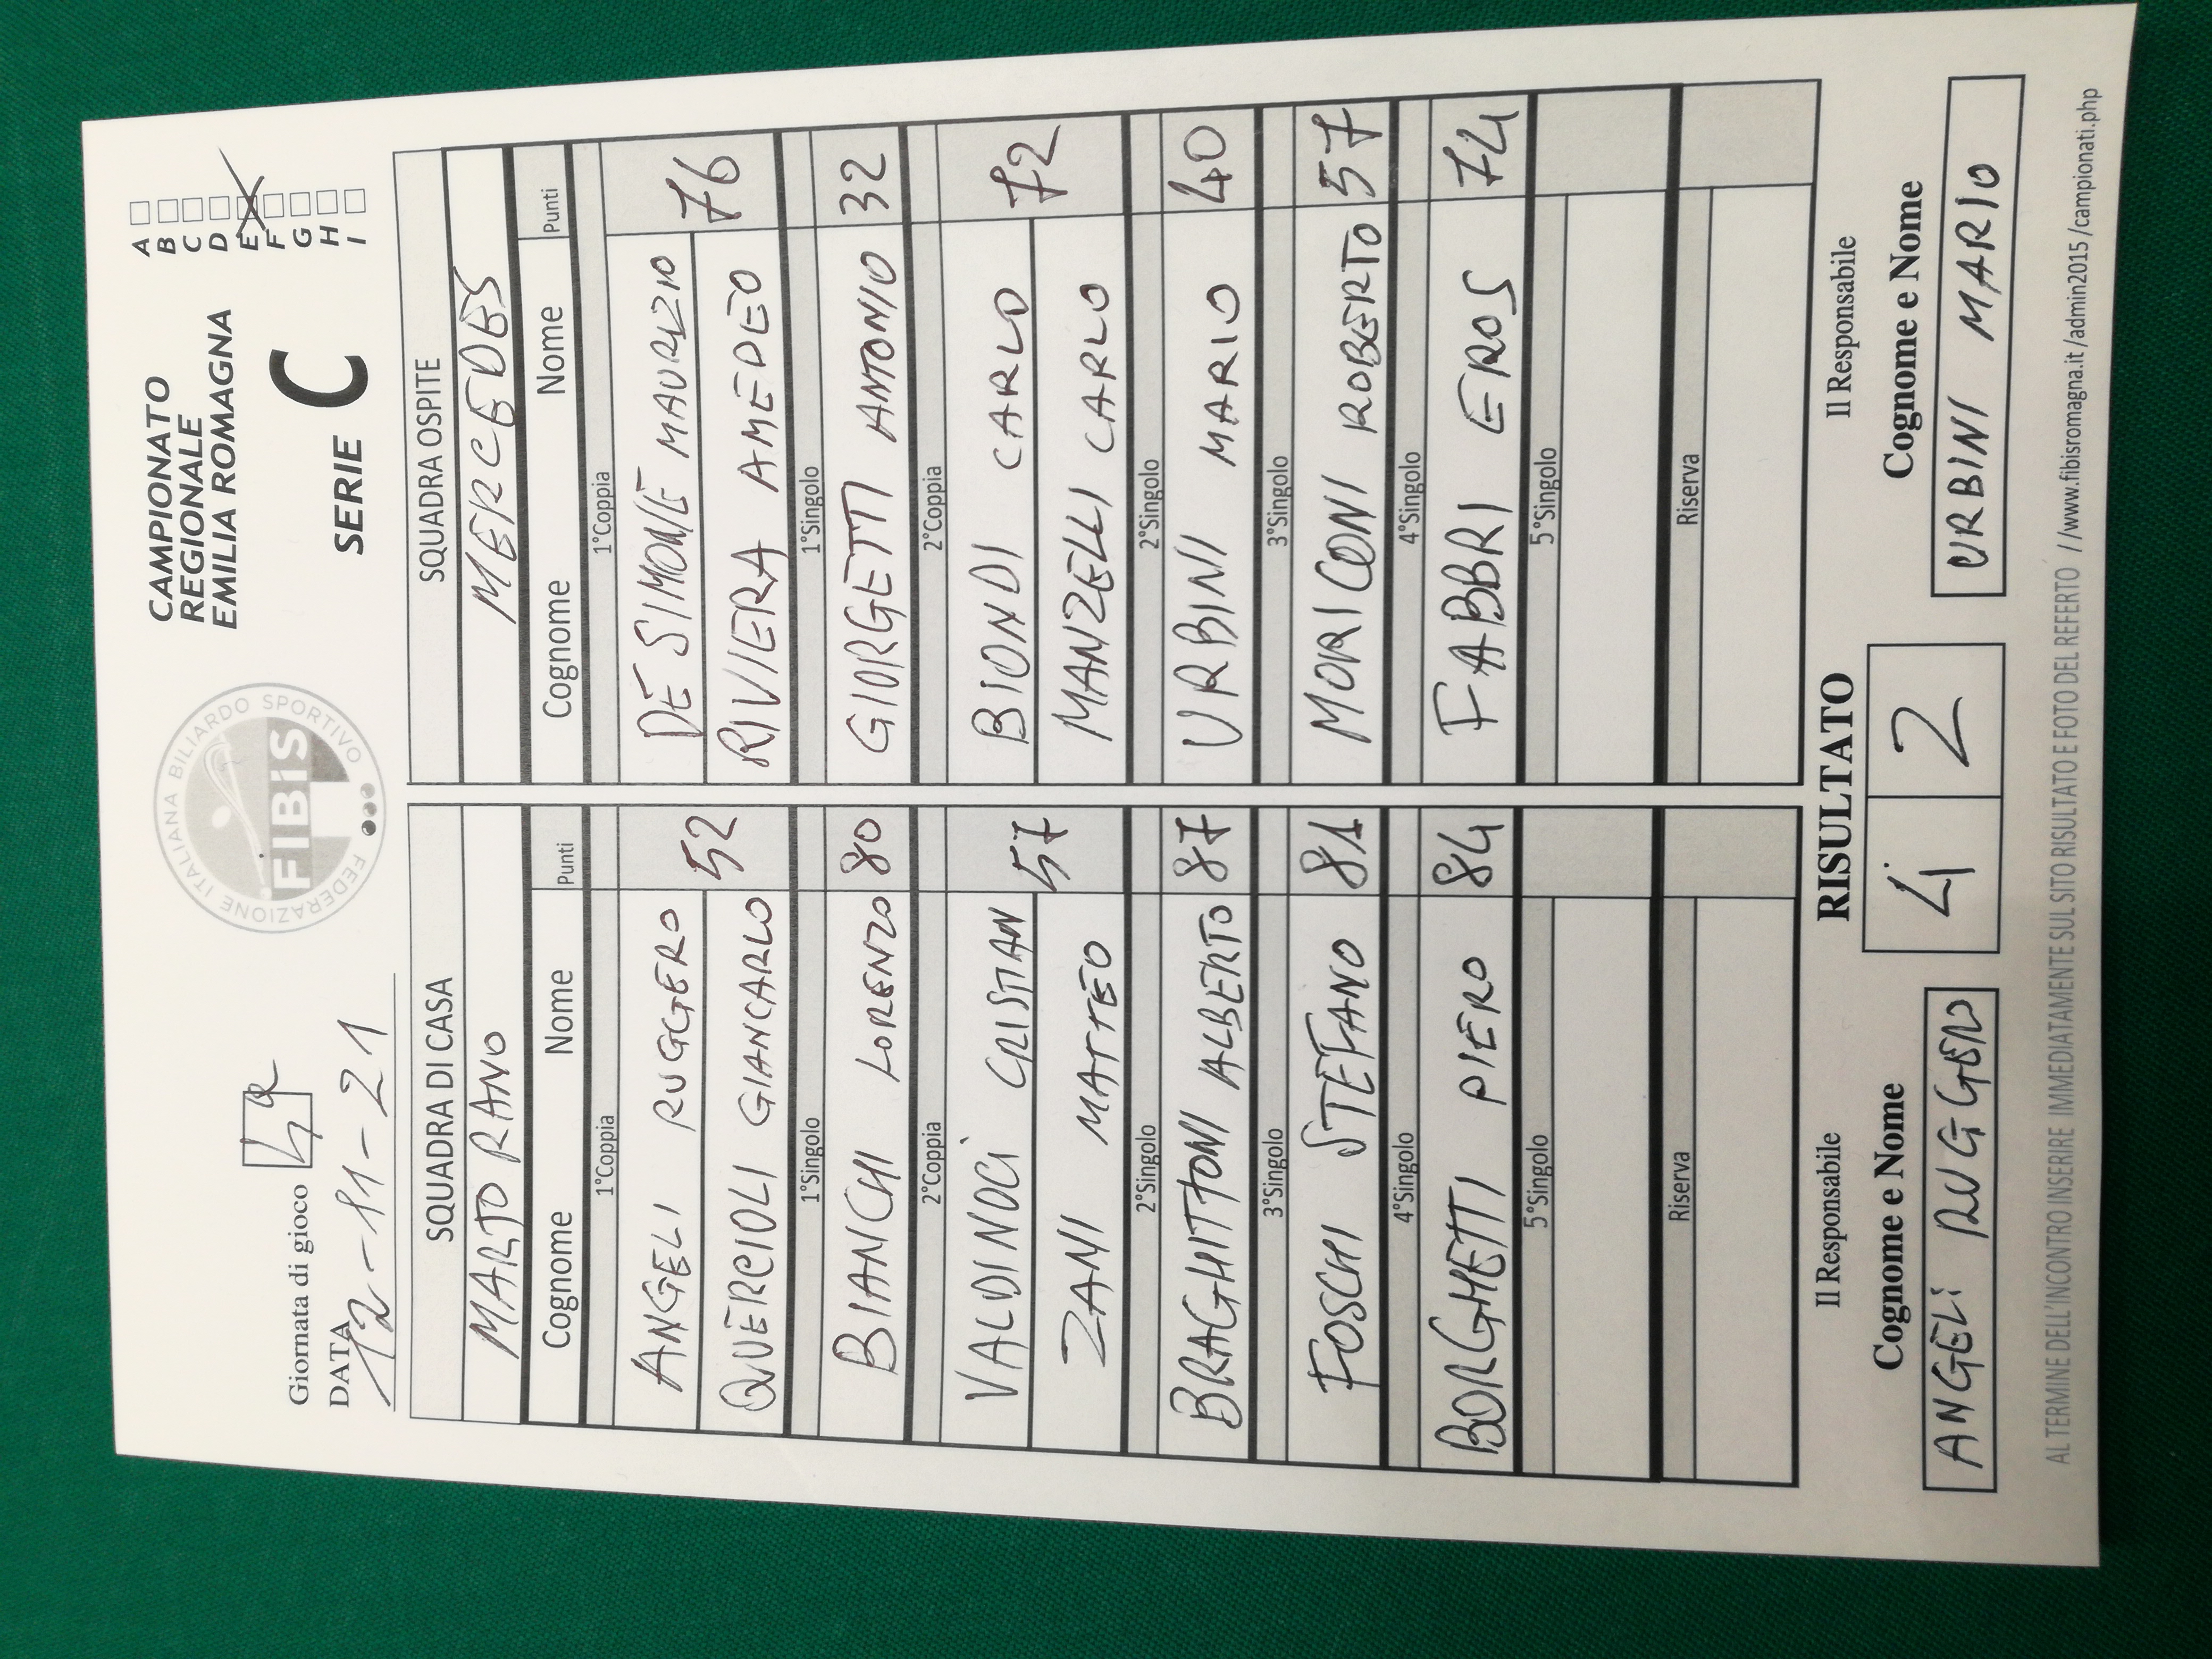 Giornata di gioco 4ª
DATA 12-11-21
FEDERAZIONE ITALIANA BILIARDO SPORTIVO
FIBiS
CAMPIONATO
REGIONALE
EMILIA ROMAGNA
SERIE C
A
B
C
D
E
F
G
H
I
SQUADRA DI CASA SQUADRA OSPITE
MARTORANO MERCEDES
Cognome Nome Punti Cognome Nome Punti
1°Coppia 1°Coppia
ANGELI RUGGERO DE SIMONE MAURIZIO
52 76
QUERCIOLI GIANCARLO RIVIERA AMEDEO
1°Singolo 1°Singolo
BIANCHI LORENZO 80 GIORGETTI ANTONIO 32
2°Coppia 2°Coppia
VALDINOCI CRISTIAN BIONDI CARLO
57 72
ZANI MATTEO MANZELLI CARLO
2°Singolo 2°Singolo
BRAGHITTONI ALBERTO 87 URBINI MARIO 40
3°Singolo 3°Singolo
FOSCHI STEFANO 81 MORICONI ROBERTO 57
4°Singolo 4°Singolo
BORGHETTI PIERO 84 FABBRI EROS 74
5°Singolo 5°Singolo
Riserva Riserva
Il Responsabile RISULTATO Il Responsabile
Cognome e Nome 4 2 Cognome e Nome
ANGELI RUGGERO URBINI MARIO
AL TERMINE DELL'INCONTRO INSERIRE IMMEDIATAMENTE SUL SITO RISULTATO E FOTO DEL REFERTO //www.fibisromagna.it/admin2015/campionati.php